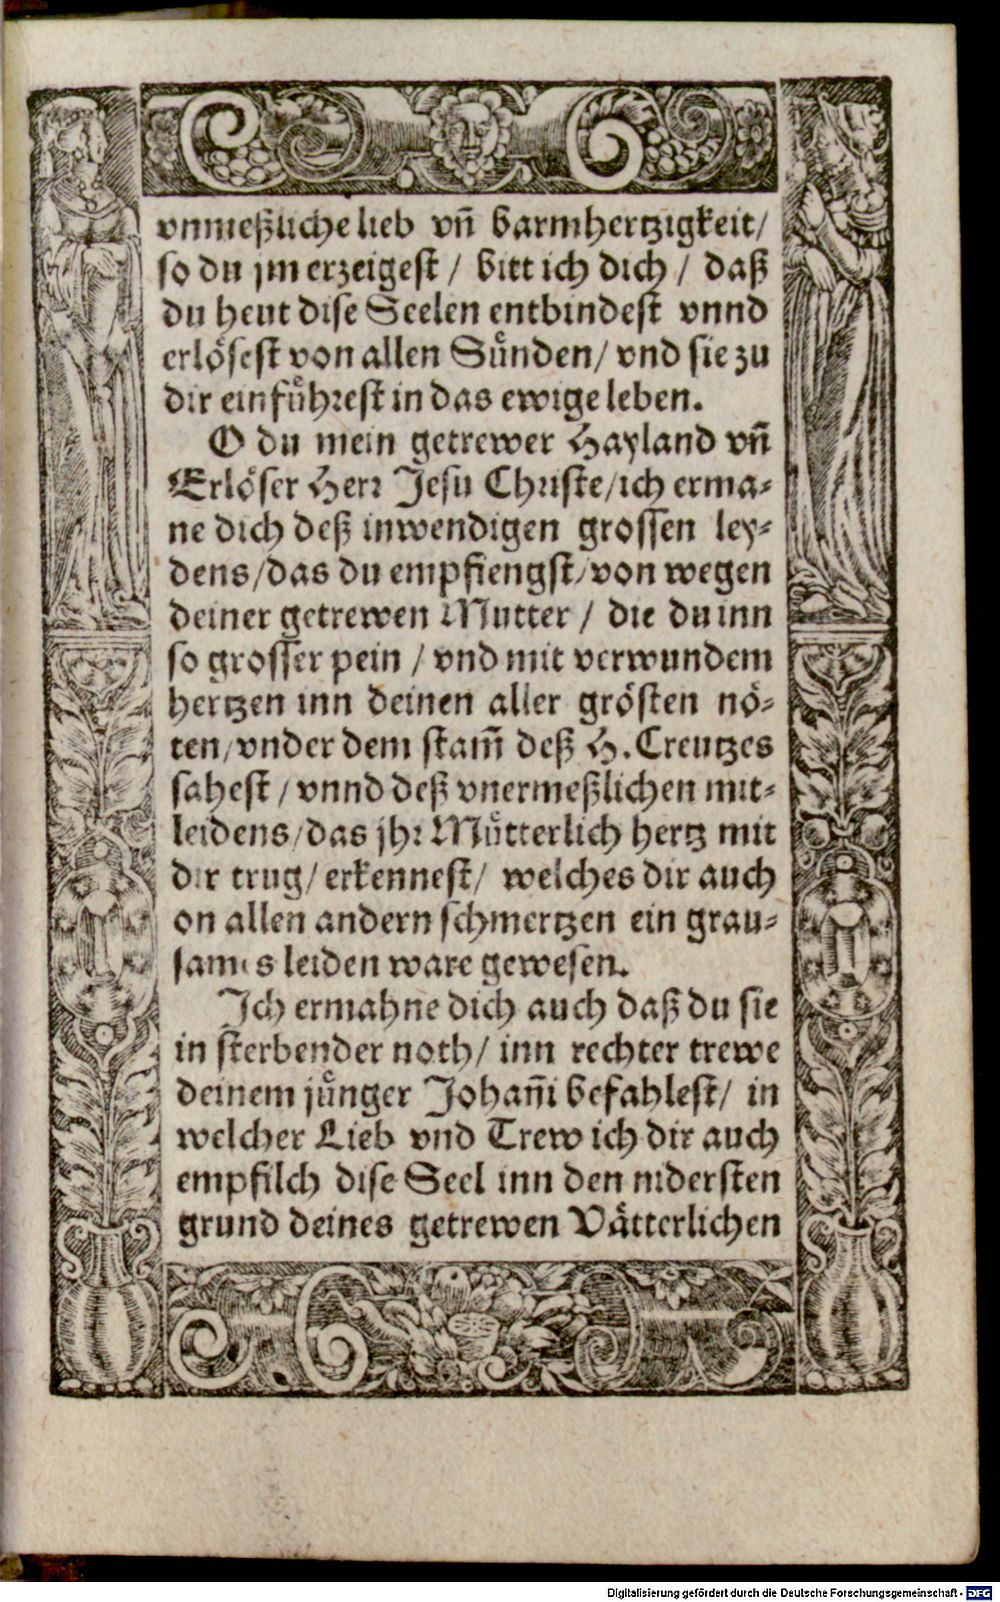 vnmeßliche lieb vñ barmhertzigkeit/
so du jm erzeigest / bitt ich dich / daß
du heut dise Seelen entbindest vnnd
erlösest von allen Suͤnden/ vnd sie zu
dir einfuͤhrest in das ewige leben.
O du mein getrewer Hayland vñ
Erlöser Herr Jesu Christe/ich erma-
ne dich deß inwendigen grossen ley-
dens/das du empfiengst/von wegen
deiner getrewen Mutter / die du inn
so grosser pein / vnd mit verwundem
hertzen inn deinen aller grösten nö-
ten/vnder dem stam̃ deß H. Creutzes
sahest / vnnd deß vnermeßlichen mit-
leidens/das jhr Muͤtterlich hertz mit
dir trug/ erkennest/ welches dir auch
on allen andern schmertzen ein grau-
sames leiden ware gewesen.
Ich ermahne dich auch daß du sie
in sterbender noth/ inn rechter trewe
deinem juͤnger Johañi befahlest/ in
welcher Lieb vnd Trew ich dir auch
empfilch dise Seel inn den nidersten
grund deines getrewen Vaͤtterlichen
Digitalisierung gefördert durch die Deutsche Forschungsgemeinschaft - DFG